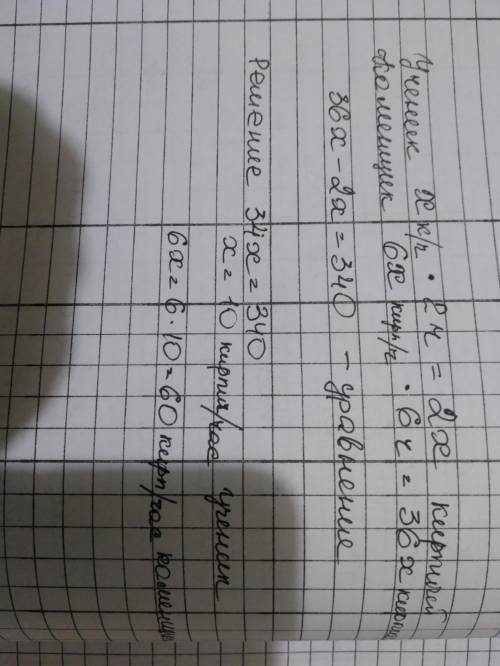 Ученик x к/ч · 2ч = 2x кирпичей
каменщик 6x кирп/ч · 6ч = 36x кирпи
36x - 2x = 340 - уравнение
Решение 34x = 340
x = 10 кирпич/час ученик
6x = 6 · 10 = 60 кирп/час каменщи